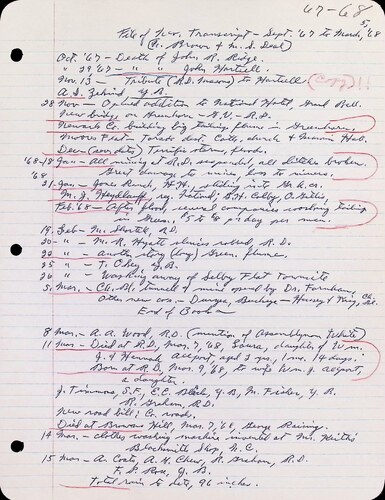 67-68
File of Nev. Transcript - Sept. '67 to March, '68
(N. Brown & M. S. Deal)
Oct. '67 - Death of John R. Ridge.
" 29 '67 - " " John Hartsell.
Nov. 13 - Tribute (R.D. Masons) to Hartsell (Copy)!!
A. S. Y.B.
28 Nov - Opened addition to National Hotel, Grand Ball.
New bridge on Greenhorn - G.V. - R.D.
Newark Co. building big tailing flume in Greenhorn.
Moores Flat - Forest last. Cath. church & Masonic Hall.
Dec - (very late) Terrific storm, floods.
'68 - 18 Jan - All mining at R.D. suspended, all ditches broken.
Great damage to mines, loss to miners.
'68
21 Jan - Jones Ranch, H.H., sliding into
M. J. reg. Patond; S.H. Eddy, O. Giles,
Feb. '68 - After flood, several companies working tailing
in Green, $5 to $8 per day per man.
19 Feb - M. Shortell, R.D.
20 " - M. R. Hyatt sluices robbed, R.D.
22 " - another story (long) Green. flumes.
25 " - T. Y.B.
26 " - Washing away of Selby Flat Townsite
5 Mar. - tunnel & mine opened by Dr. Farnham,
Other new cos - Durgea, Buckeye - Hussey & King, Cht. Sl.
End of Book
8 Mar. - A. A. Wood, R.D. (mention of Assemblyman White)
11 Mar - Died at R.D. Mar. 7, '68, Laura, daughter of Wm.
J. & Hannah Allport, aged 3 yrs, 1 mo. 14 days.
Born at R.D. Mar. 9, '68, to wife Wm. J. Allport,
a daughter.
J. Timmons, S.F., E.C. Block, Y.B., M. Fisher, Y.B.
R. Graham R.D.
New road bill; Co. roads.
Died at Browns Hill, Mar. 7, '68, George
14 Mar. - clothes washing machine invented at Mr.
Blacksmith Shop, N.C.
15 Mar - A. Coats, A. H. Chew, R. Graham, R.D.
F. S. Rose, Y.B.
Total rain to date, 96 inches.